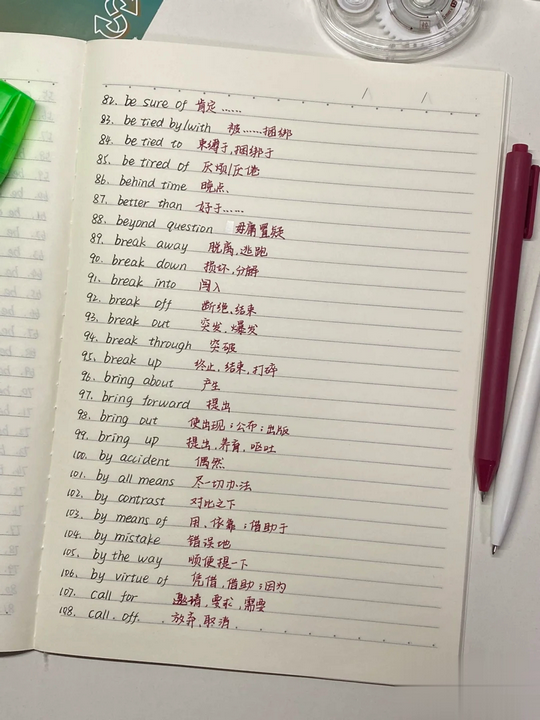 82. be sure of 肯定……
83. be tied by/with 被……捆绑
84. be tied to 束缚于,捆绑于
85. be tired of 厌烦/厌倦
86. behind time 晚点、
87. better than 好于……
88. beyond question 毋庸置疑
89. break away 脱离,逃跑
90. break down 损坏,分解
91. break into 闯入
92. break off 断绝,结束
93. break out 突发,爆发
94. break through 突破
95. break up 终止,结束,打碎
96. bring about 产生
97. bring forward 提出
98. bring out 使出现;公布;出版
99. bring up 提出,养育,呕吐
100. by accident 偶然
101. by all means 尽一切办法
102. by contrast 对比之下
103. by means of 用、依靠;借助于
104. by mistake 错误地
105. by the way 顺便提一下
106. by virtue of 凭借,借助;因为
107. call for 邀请,要求,需要
108. call off 放弃,取消